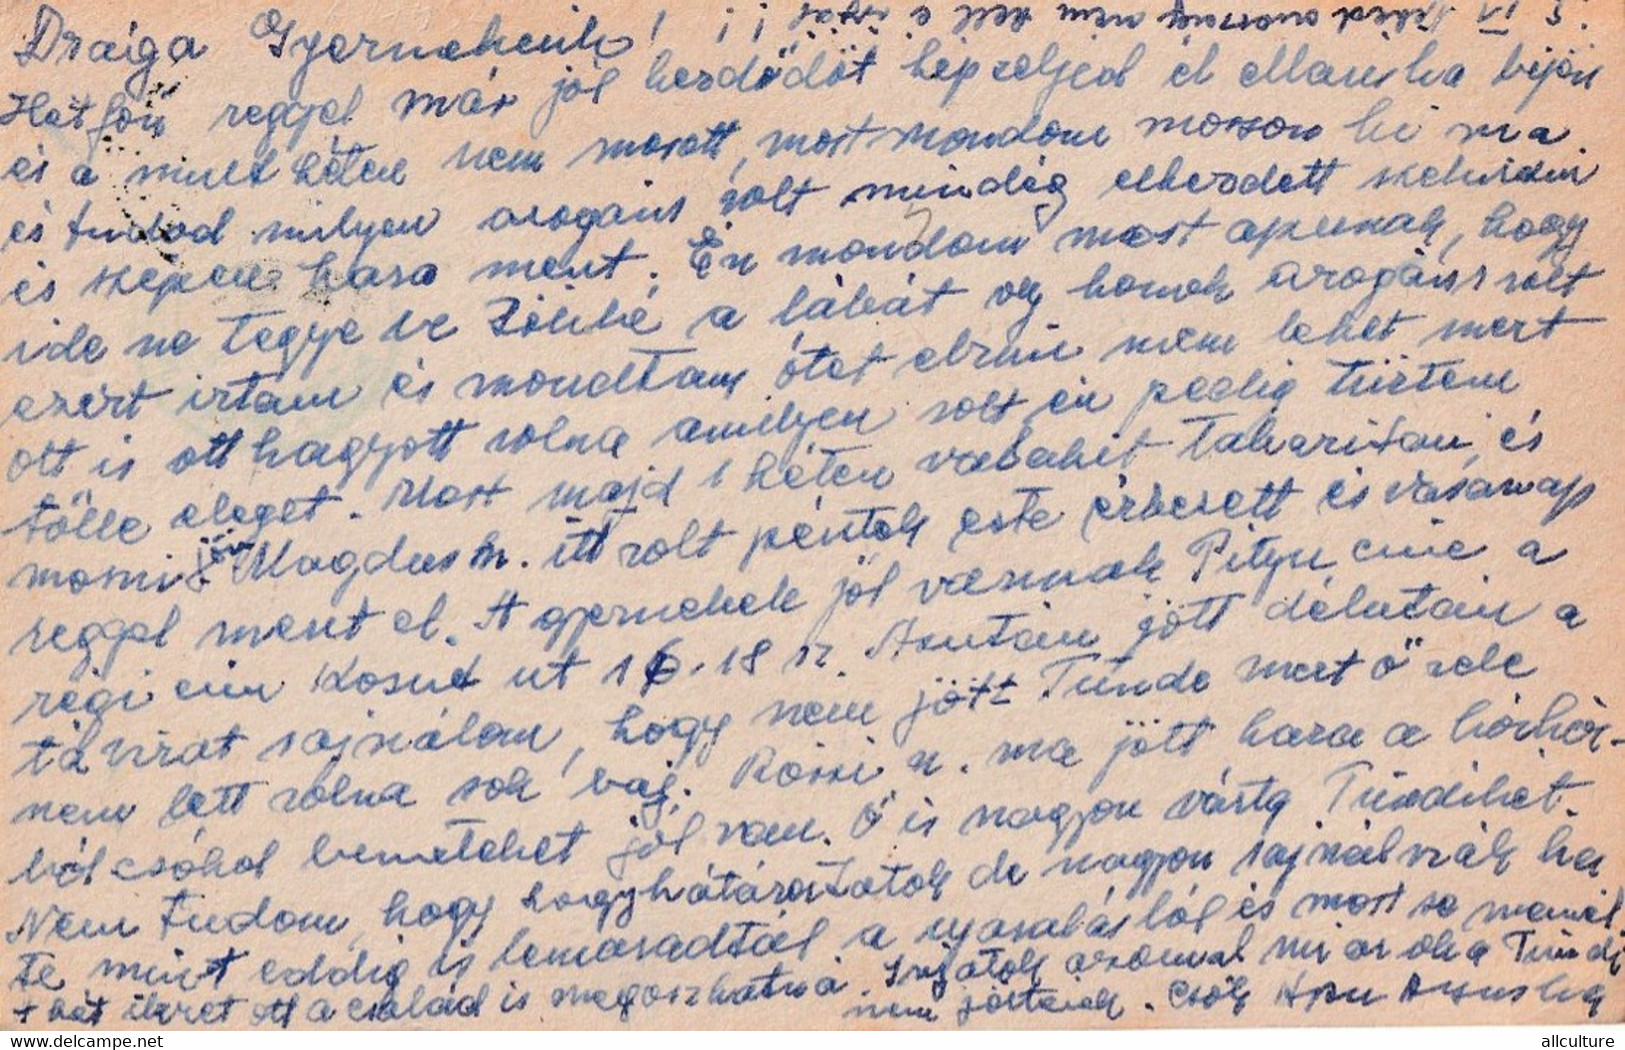 Drága Gyermekeink!
Hétfőn reggel már jól kezdődöt képzeljed el Mariska bejön
és a mult héten nem mosott, most mondom mosson ki ma
és tudod milyen arogáns volt mindég elkezdett
és szepen haza ment. Én mondom most apunak, hogy
ide ne tegye be többé a lábát oly arogáns volt
ezért irtam és mondtam ótet elvini nem lehet mert
ott is ott hagyott volna amilyen volt én pedig türtem
tölle eleget. Most majd 1 héten takaritani, és
mosni jön Magdus n. itt volt péntek este érkezett és vasárnap
reggel ment el. A gyermekek jól vannak Pityu cime a
régi cim Kosut ut 16.-18 sz Azután jött délután a
távirat sajnálom, hogy nem jött Tünde mert ő vele
nem lett volna sok baj. Rózsi n. ma jött haza a kórház-
ból csókol benneteket jól van. Ő is nagyon várta Tündikét.
Nem tudom, hogy hogy határoztatok de nagyon sajnálnák ha
te mint eddig is lemaradtál a nyaralásból és most se mennél
+ két ott a család is megoszhatná. Irjátok azonnal mi az oka Tündi
nem jöttének. Csók Apu Anyuka